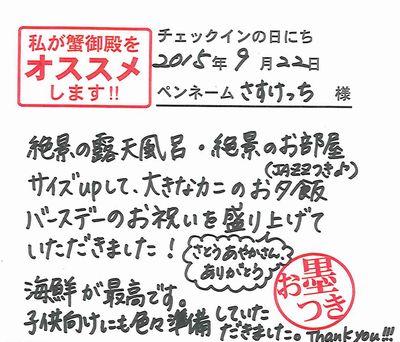 私が蟹御殿を
オススメ
します!!
チェックインの日にち
2015年9月22日
ペンネーム さすけっち 様
絶景の露天風呂・絶景のお部屋
(JAZZつきよ)
サイズupして、大きなカニのお夕飯
バースデーのお祝いを盛り上げて
いただきました!
さとうあやかさん、
ありがとう
海鮮が最高です。
子供向けにも色々準備していた
だきました。Thank you!!!
お墨
つき